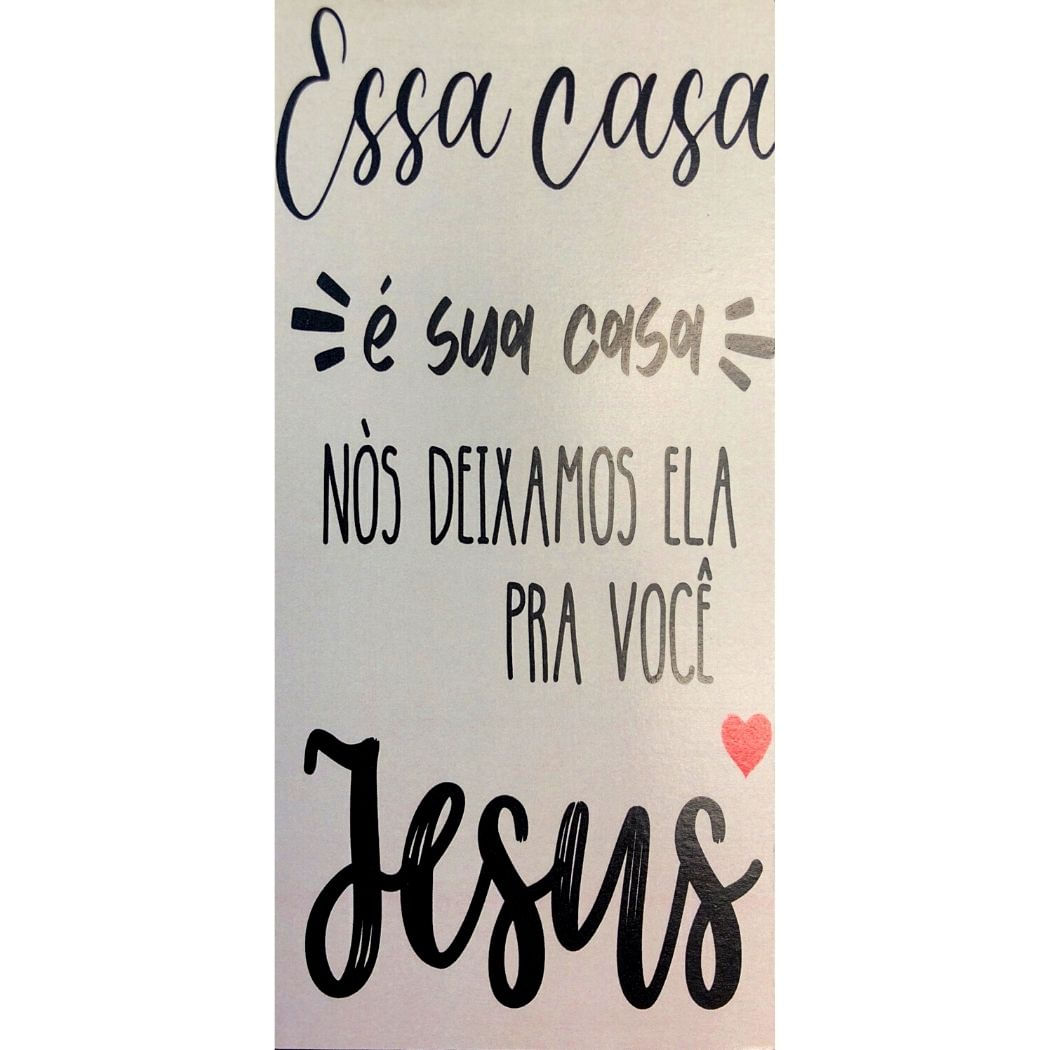 Essa casa
é sua casa
NÒS DEIXAMOS ELA
PRA VOCÊ
Jesus